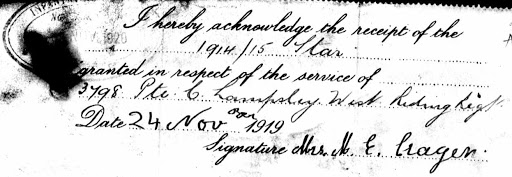 I hereby acknowledge the receipt of the
1914/15 Star
granted in respect of the service of
3798 Pte. C Lampsley West Riding Regt
Date 24 Nov 1919
Signature Mrs. M. E. Cragen.